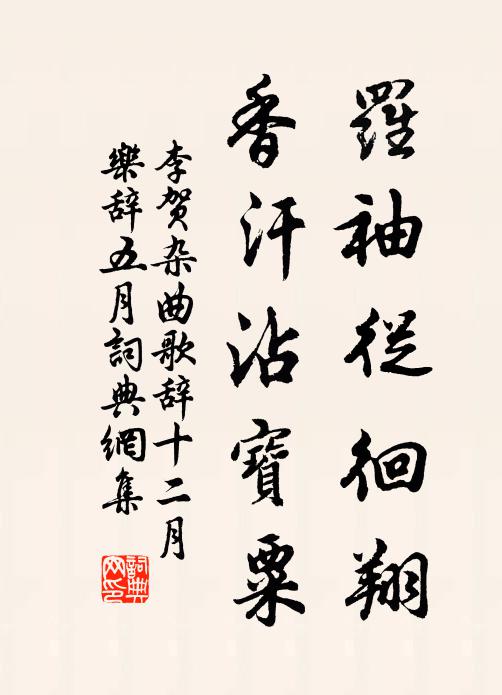 羅袖從徊翔
香汗沾寶粟
李贺杂曲歌辞十二月
樂辞五月詞典網集
詞典
网印